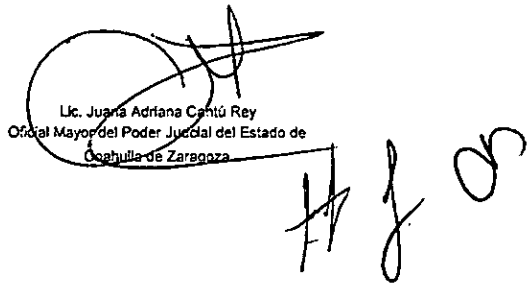 Lic. Juana Adriana Cantú Rey
Oficial Mayor del Poder Judicial del Estado de
Coahuila de Zaragoza